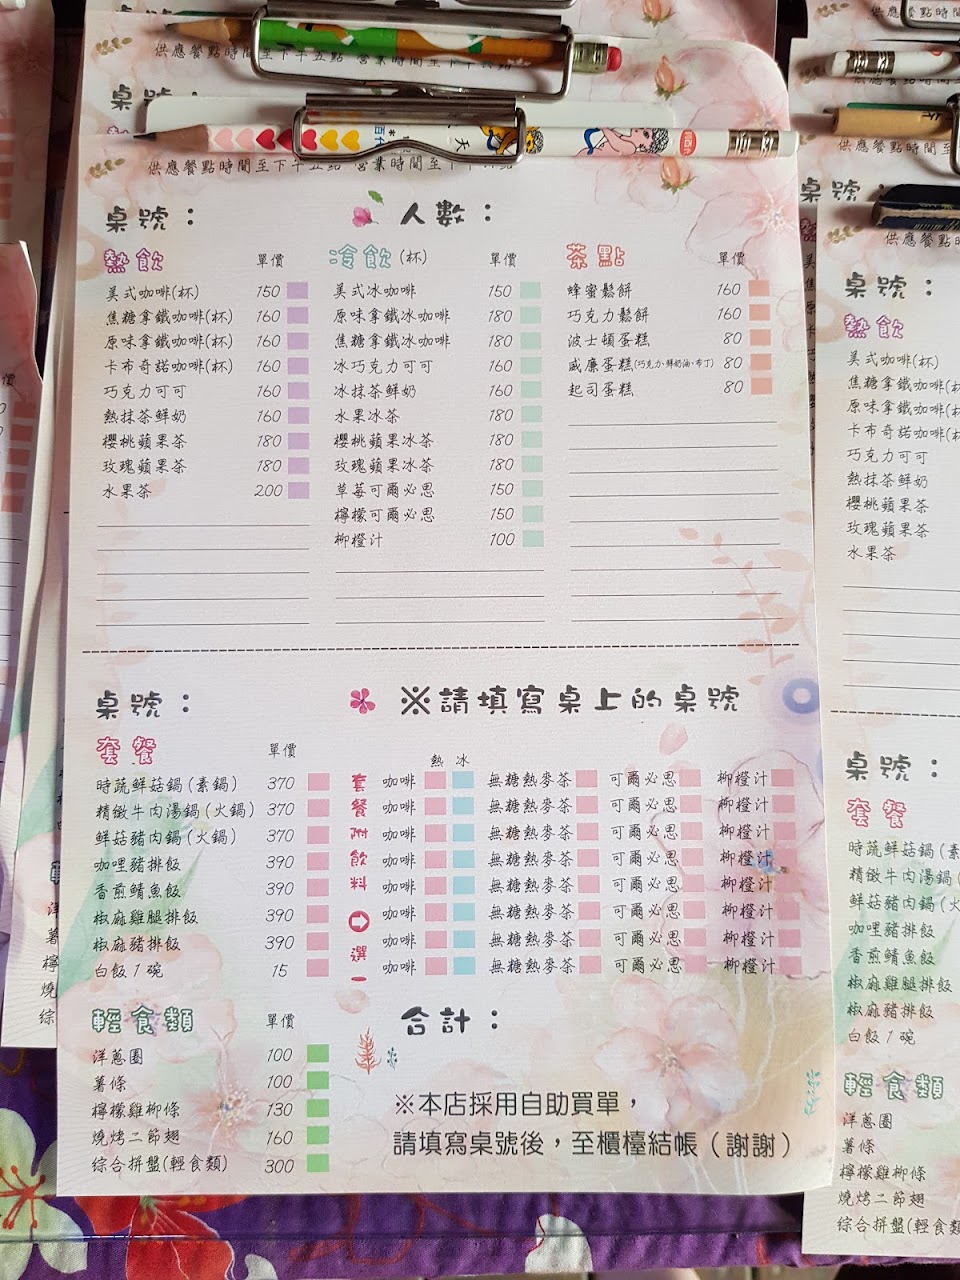 供應餐點時間至下午五點 營業時間至下午
桌號：
人數：
熱飲 單價
美式咖啡(杯) 150
焦糖拿鐵咖啡(杯) 160
原味拿鐵咖啡(杯) 160
卡布奇諾咖啡(杯) 160
巧克力可可 160
熱抹茶鮮奶 160
櫻桃蘋果茶 180
玫瑰蘋果茶 180
水果茶 200
冷飲(杯) 單價
美式冰咖啡 150
原味拿鐵冰咖啡 180
焦糖拿鐵冰咖啡 180
冰巧克力可可 160
冰抹茶鮮奶 160
水果冰茶 180
櫻桃蘋果冰茶 180
玫瑰蘋果冰茶 180
草莓可爾必思 150
檸檬可爾必思 150
柳橙汁 100
茶點 單價
蜂蜜鬆餅 160
巧克力鬆餅 160
波士頓蛋糕 80
戚廉蛋糕(巧克力·鮮奶油·布丁) 80
起司蛋糕 80
桌號：
※請填寫桌上的桌號
套餐 單價
時蔬鮮菇鍋(素鍋) 370
精緻牛肉湯鍋(火鍋) 370
鮮菇豬肉鍋(火鍋) 370
咖哩豬排飯 390
香煎鯖魚飯 390
椒麻雞腿排飯 390
椒麻豬排飯 390
白飯1碗 15
套餐附飲料➔選一
熱 冰
咖啡 無糖熱麥茶 可爾必思 柳橙汁
咖啡 無糖熱麥茶 可爾必思 柳橙汁
咖啡 無糖熱麥茶 可爾必思 柳橙汁
咖啡 無糖熱麥茶 可爾必思 柳橙汁
咖啡 無糖熱麥茶 可爾必思 柳橙汁
咖啡 無糖熱麥茶 可爾必思 柳橙汁
咖啡 無糖熱麥茶 可爾必思 柳橙汁
咖啡 無糖熱麥茶 可爾必思 柳橙汁
輕食類 單價
洋蔥圈 100
薯條 100
檸檬雞柳條 130
燒烤二節翅 160
综合拼盤(輕食類) 300
合計：
※本店採用自助買單，
請填寫桌號後，至櫃檯結帳（謝謝）
供應餐點時間至
桌號：
熱飲
美式咖啡(杯)
焦糖拿鐵咖啡(杯
原味拿鐵咖啡(
卡布奇諾咖啡(
巧克力可可
熱抹茶鮮奶
櫻桃蘋果茶
玫瑰蘋果茶
水果茶
桌號：
套餐
時蔬鮮菇鍋(素
精緻牛肉湯鍋(
鮮菇豬肉鍋(火
咖哩豬排飯
香煎鯖魚飯
椒麻雞腿排飯
椒麻豬排飯
白飯1碗
輕食類
洋蔥圈
薯條
檸檬雞柳條
燒烤二節翅
綜合拼盤(輕食